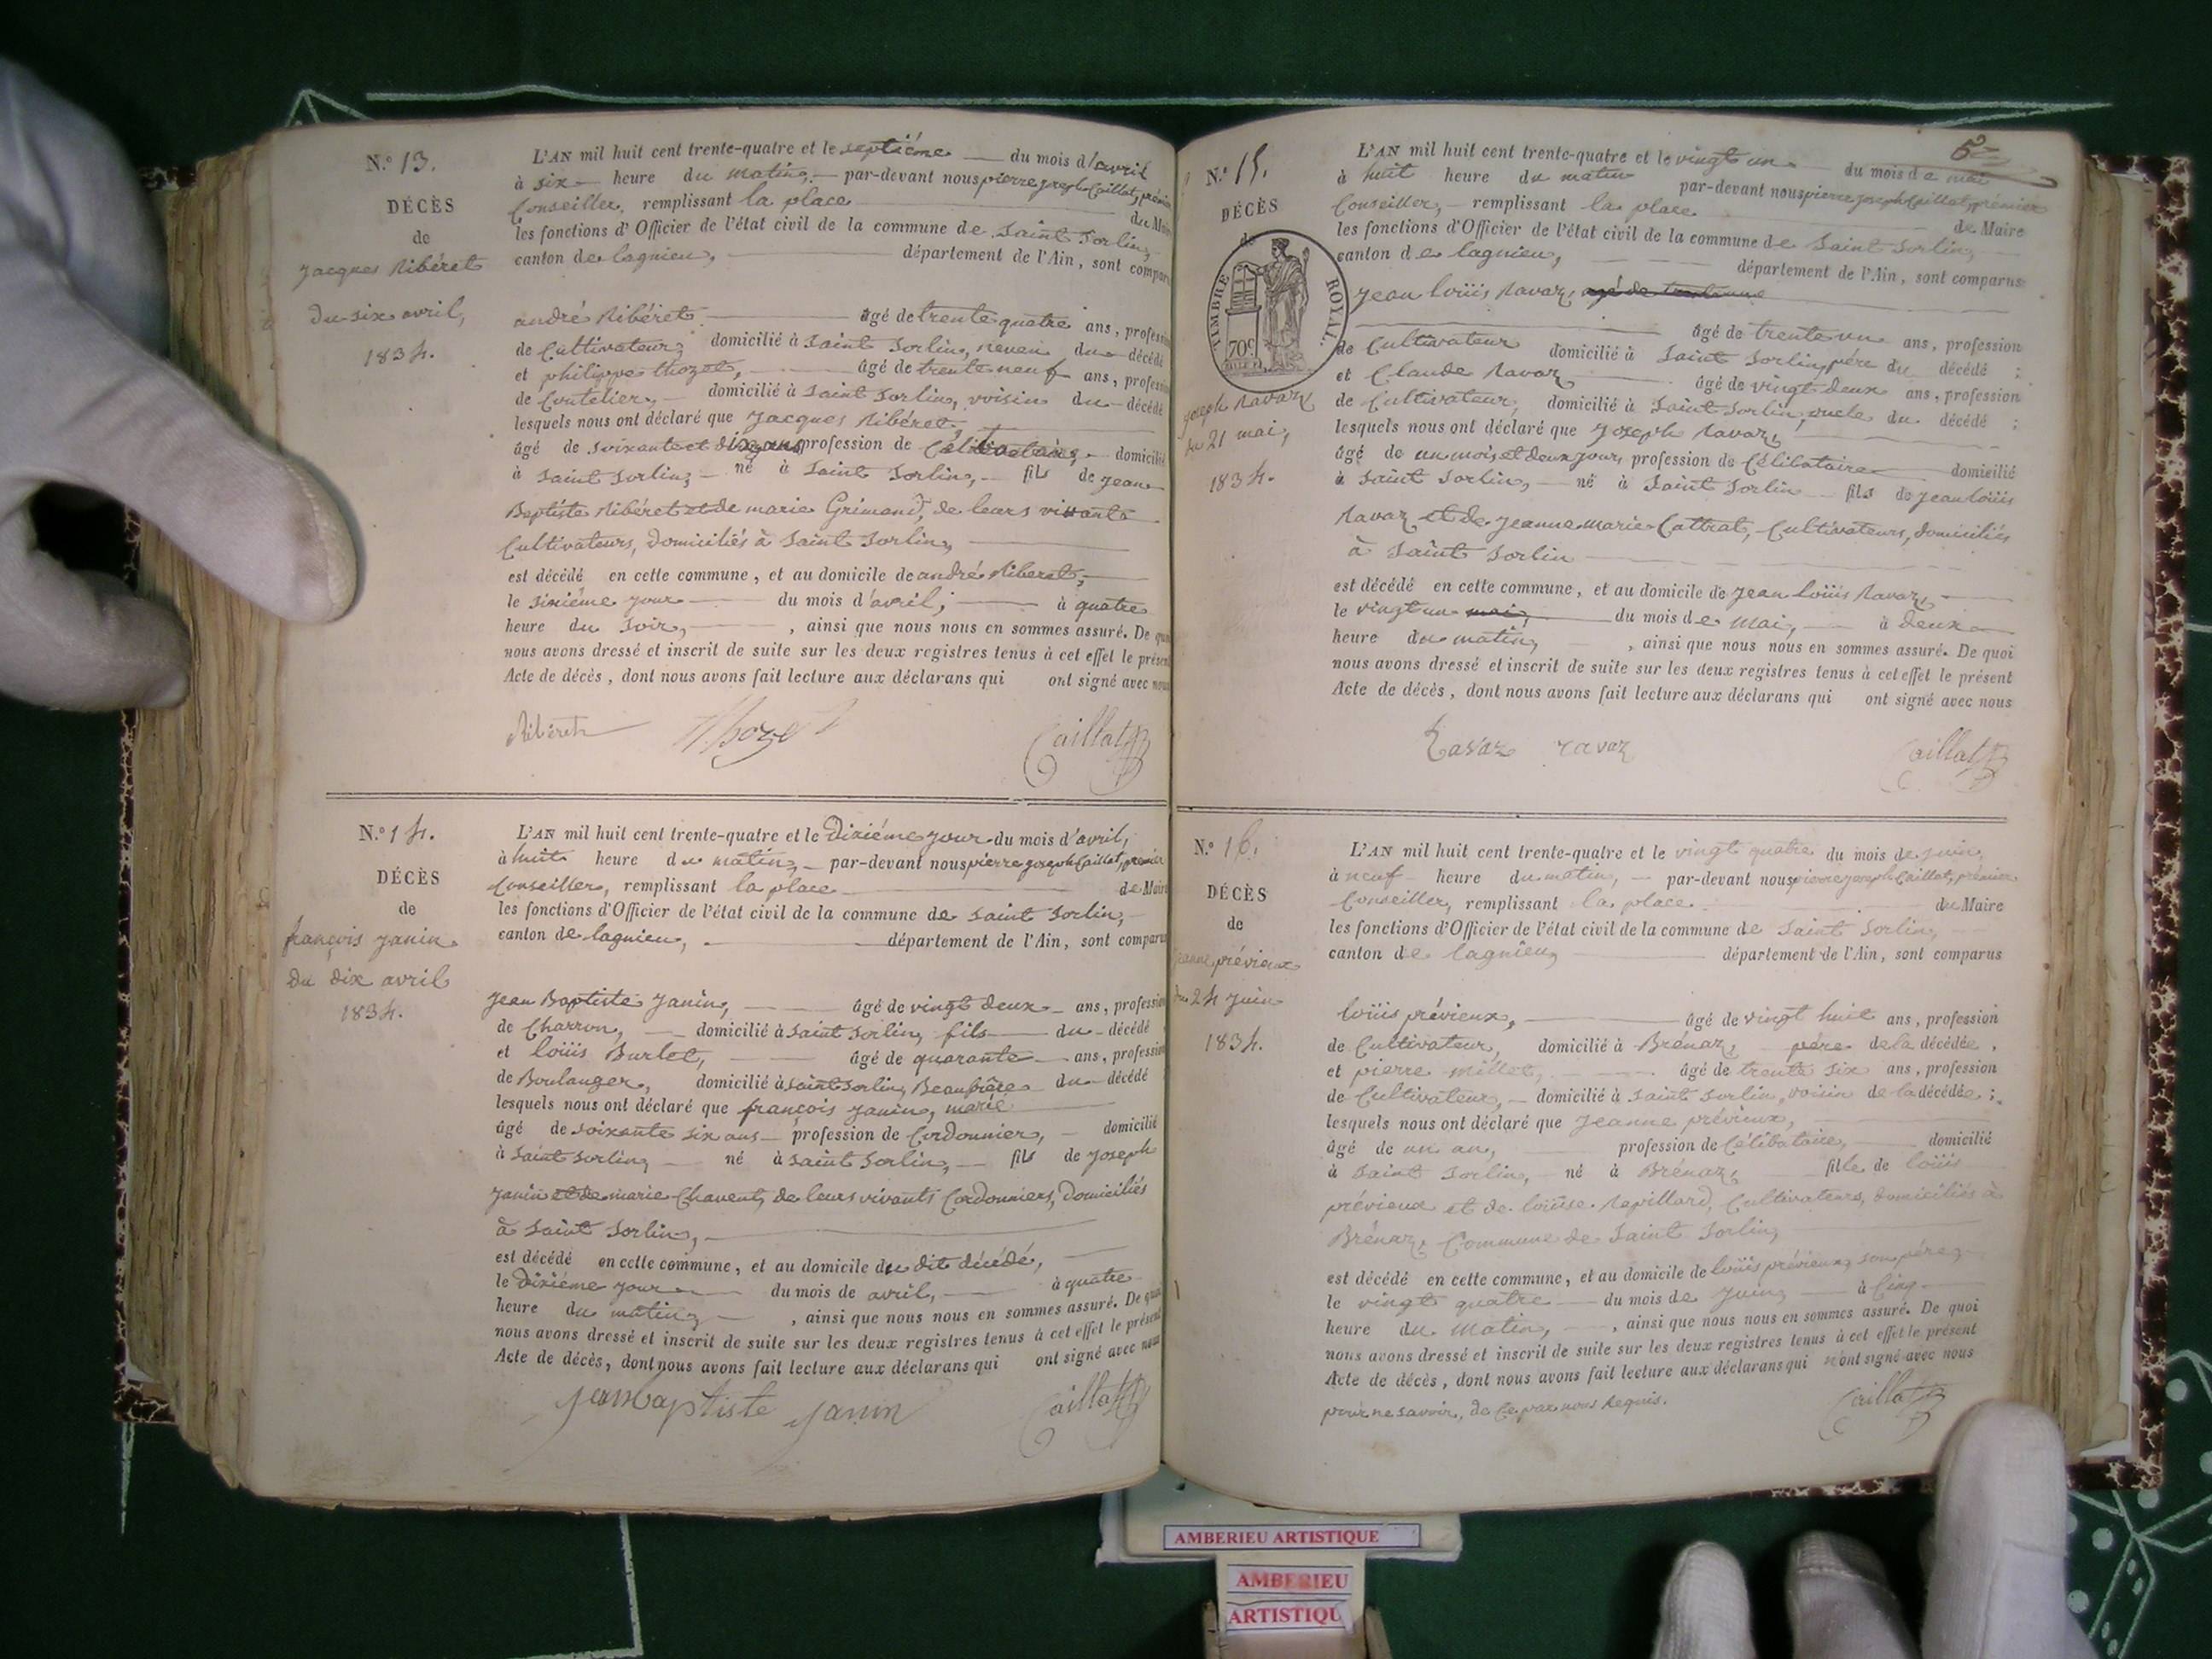 N.º 13.
DÉCÈS
de
Jacques Ribéret
du six avril,
1834.
L'AN mil huit cent trente-quatre et le septième du mois d'avril
à six heure du matin, par-devant nous pierre joseph Caillat, premier
Conseiller, remplissant la place du Maire
les fonctions d'Officier de l'état civil de la commune de Saint Sorlin,
canton de lagnieu, département de l'Ain, sont comparus
andré Ribéret âgé de trente quatre ans, profession
de Cultivateur, domicilié à Saint Sorlin, neveu du décédé
et philippe thozet, âgé de trente neuf ans, profession
de Coutelier, domicilié à Saint Sorlin, voisin du décédé
lesquels nous ont déclaré que Jacques Ribéret
âgé de soixante et dix ans profession de Célibataire, domicilié
à Saint Sorlin, né à Saint Sorlin, fils de jean
Baptiste Ribéret et de marie Grimand, de leurs vivants
Cultivateurs, domiciliés à Saint Sorlin,
est décédé en cette commune, et au domicile de andré Ribéret,
le sixième jour du mois d'avril, à quatre
heure du soir, , ainsi que nous nous en sommes assuré. De quoi
nous avons dressé et inscrit de suite sur les deux registres tenus à cet effet le présent
Acte de décès, dont nous avons fait lecture aux déclarans qui ont signé avec nous
Ribéret Thozet Caillat
N.º 14.
DÉCÈS
de
françois Janin
du dix avril
1834.
L'AN mil huit cent trente-quatre et le Dixiéme jour du mois d'avril,
à huit heure du matin, par-devant nous pierre joseph Caillat, premier
Conseiller, remplissant la place de Maire
les fonctions d'Officier de l'état civil de la commune de Saint Sorlin,
canton de lagnieu, département de l'Ain, sont comparus
Jean Baptiste Janin, âgé de vingt deux ans, profession
de Charron, domicilié à Saint Sorlin, fils du décédé
et loüis Burlet, âgé de quarante ans, profession
de Boulanger, domicilié à Saint Sorlin, Beaufrère du décédé
lesquels nous ont déclaré que françois Janin, marié
âgé de soixante six ans profession de Cordonnier, domicilié
à Saint Sorlin, né à Saint Sorlin, fils de Joseph
Janin et de marie Chavent, de leurs vivants Cordonniers, domiciliés
à Saint Sorlin,
est décédé en cette commune, et au domicile du dit décédé,
le Dixiéme jour du mois de avril, à quatre
heure du matin, , ainsi que nous nous en sommes assuré. De quoi
nous avons dressé et inscrit de suite sur les deux registres tenus à cet effet le présent
Acte de décès, dont nous avons fait lecture aux déclarans qui ont signé avec nous
jean baptiste janin Caillat
N.º 15.
DÉCÈS
de
TIMBRE ROYAL.
70c
joseph Ravaz
du 21 mai,
1834.
L'AN mil huit cent trente-quatre et le vingt un du mois de mai
à huit heure du matin par-devant nous pierre joseph Caillat, premier
Conseiller, remplissant la place de Maire
les fonctions d'Officier de l'état civil de la commune de Saint Sorlin,
canton de lagnieu, département de l'Ain, sont comparus
Jean loüis Ravaz, âgé de
âgé de trente un ans, profession
de Cultivateur domicilié à Saint Sorlin, père du décédé ;
et Claude Ravaz âgé de vingt deux ans, profession
de Cultivateur, domicilié à Saint Sorlin, oncle du décédé ;
lesquels nous ont déclaré que Joseph Ravaz,
âgé de un mois et deux jours, profession de Célibataire domicilié
à Saint Sorlin, né à Saint Sorlin fils de jean loüis
Ravaz et de Jeanne marie Cattrat, Cultivateurs, domiciliés
à Saint Sorlin
est décédé en cette commune, et au domicile de Jean loüis Ravaz,
le vingt un mai, du mois de Mai, à deux
heure du matin, , ainsi que nous nous en sommes assuré. De quoi
nous avons dressé et inscrit de suite sur les deux registres tenus à cet effet le présent
Acte de décès, dont nous avons fait lecture aux déclarans qui ont signé avec nous
Ravaz ravaz Caillat
N.º 16.
DÉCÈS
de
jeanne prévieux
du 24 juin
1834.
L'AN mil huit cent trente-quatre et le vingt quatre du mois de juin,
à neuf heure du matin, par-devant nous pierre joseph Caillat, premier
Conseiller, remplissant la place du Maire
les fonctions d'Officier de l'état civil de la commune de Saint Sorlin,
canton de lagnieu, département de l'Ain, sont comparus
loüis prévieux, âgé de vingt huit ans, profession
de Cultivateur, domicilié à Brénaz, père de la décédée,
et pierre Millet, âgé de trente six ans, profession
de Cultivateur, domicilié à Saint Sorlin, voisin de la décédée ;
lesquels nous ont déclaré que Jeanne prévieux,
âgé de un an, profession de Célibataire, domicilié
à Saint Sorlin, né à Brénaz, fille de loüis
prévieux et de loüise Rapillard, Cultivateurs, domiciliés à
Brénaz, Commune de Saint Sorlin,
est décédé en cette commune, et au domicile de loüis prévieux, son père,
le vingt quatre du mois de Juin, à Cinq
heure du Matin, , ainsi que nous nous en sommes assuré. De quoi
nous avons dressé et inscrit de suite sur les deux registres tenus à cet effet le présent
Acte de décès, dont nous avons fait lecture aux déclarans qui n'ont signé avec nous
pour ne savoir, de ce par nous Requis. Caillat
AMBERIEU ARTISTIQUE
AMBERIEU
ARTISTIQU